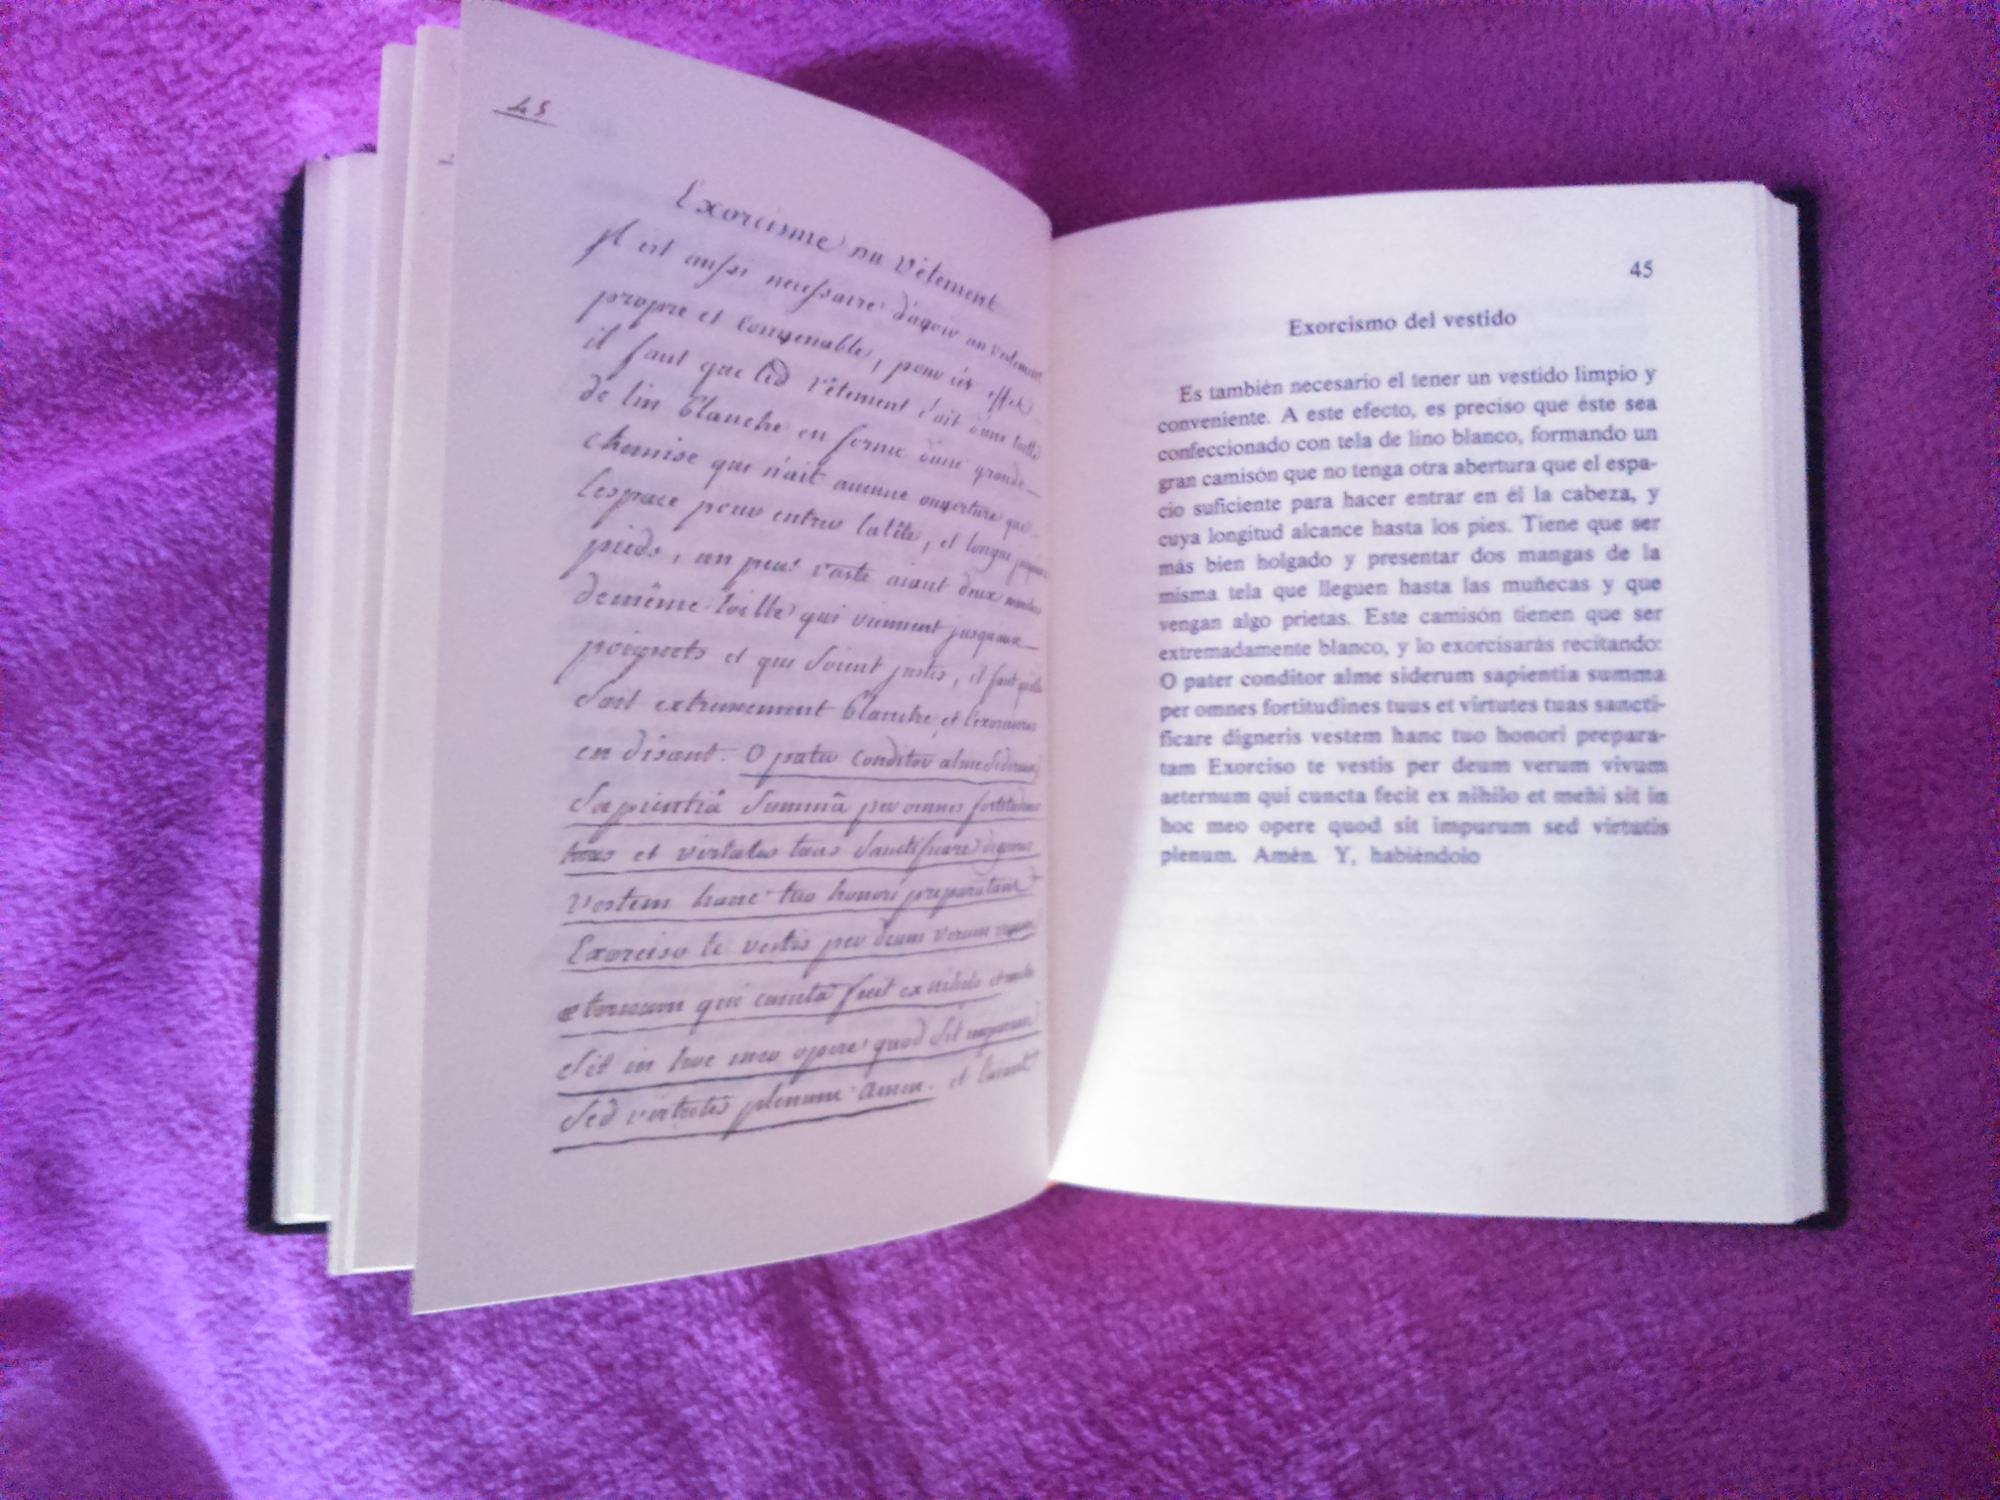 45
Exorcisme du vêtement
il est aussi necessaire d'avoir un vetement
propre et convenable, pour cet effet
il faut que led vêtement soit d'une toille
de lin blanche en forme d'une grande
chemise qui n'ait aucune ouverture que
l'espace pour entrer la tête, et longue
pieds, un peu vaste aiant deux manches
de même toille qui viennent jusqu'aux
poignets et qui soient justes, il faut qu'elle
soit extremement blanche et l'exorciseras
en disant. O pater conditor alme siderum
sapientiâ summâ per omnes fortitudines
tuas et virtutes tuas sanctificare digneris
vestem hanc tuo honori preparatam
Exorciso te vestis per deum verum vivum
æternum qui cuncta fecit ex nihilo et
sit in hoc meo opere quod sit impurum
sed virtutis plenum Amen. et l'aiant
45
Exorcismo del vestido
Es también necesario el tener un vestido limpio y
conveniente. A este efecto, es preciso que éste sea
confeccionado con tela de lino blanco, formando un
gran camisón que no tenga otra abertura que el espa-
cio suficiente para hacer entrar en él la cabeza, y
cuya longitud alcance hasta los pies. Tiene que ser
más bien holgado y presentar dos mangas de la
misma tela que lleguen hasta las muñecas y que
vengan algo prietas. Este camisón tienen que ser
extremadamente blanco, y lo exorcisarás recitando:
O pater conditor alme siderum sapientia summa
per omnes fortitudines tuus et virtutes tuas sancti-
ficare digneris vestem hanc tuo honori prepara-
tam Exorciso te vestis per deum verum vivum
aeternum qui cuncta fecit ex nihilo et mehi sit in
hoc meo opere quod sit impurum sed virtutis
plenum. Amén. Y, habiéndolo